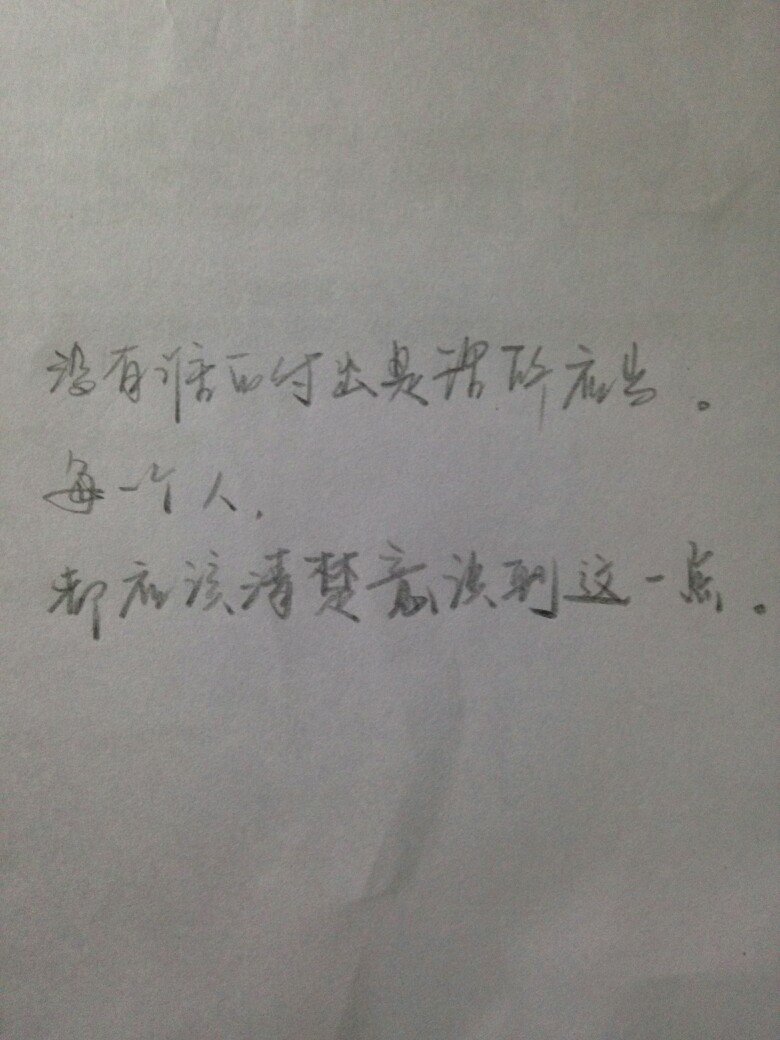 没有谁的付出是理所应当。
每一个人，
都应该清楚意识到这一点。